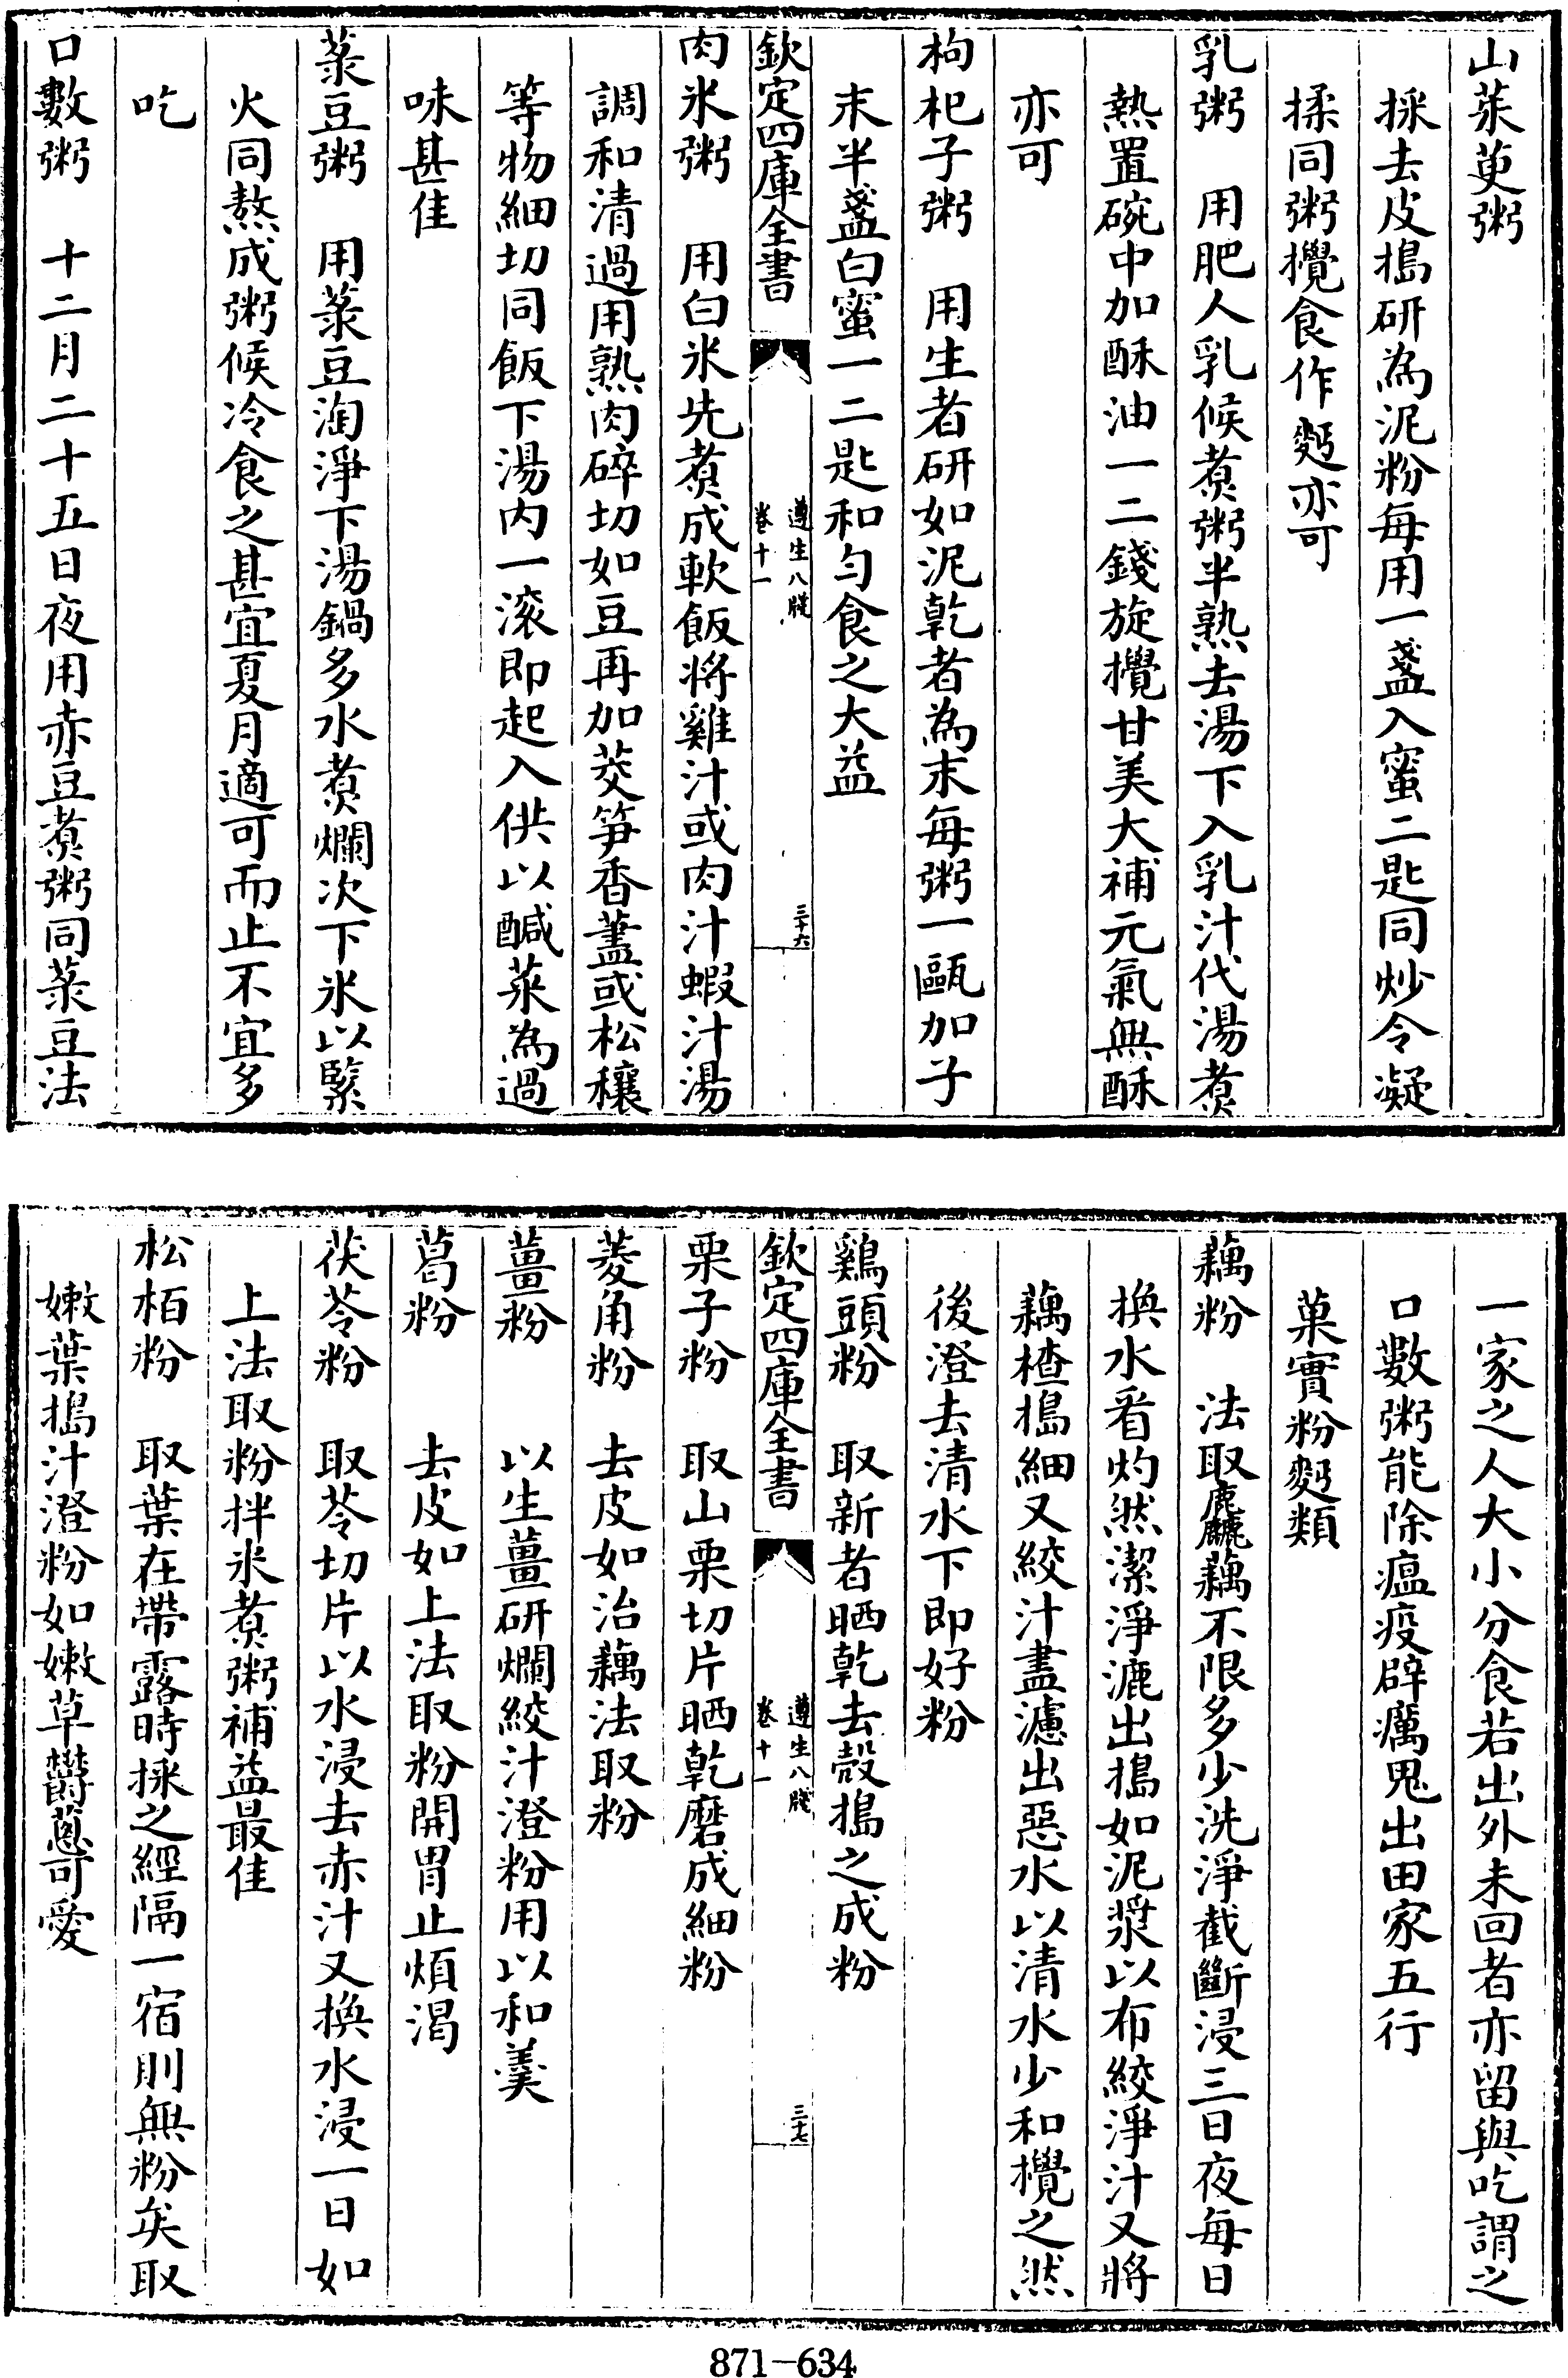 山茱萸粥
採去皮搗研為泥粉每用一盞入蜜二匙同炒令凝
揉同粥攪食作麫亦可
乳粥　用肥人乳候煮粥半熟去湯下入乳汁代湯煮
熱置碗中加酥油一二錢旋攪甘美大補元氣無酥
亦可
枸杞子粥　用生者研如泥乾者為末每粥一甌加子
末半盞白蜜一二匙和勻食之大益
欽定四庫全書
遵生八牋
卷十一
三十六
肉米粥　用白米先煮成軟飯將雞汁或肉汁蝦汁湯
調和清過用熟肉碎切如豆再加茭笋香藎或松穰
等物細切同飯下湯内一滚即起入供以鹹菜為過
味甚佳
菉豆粥　用菉豆淘淨下湯鍋多水煮爛次下米以緊
火同熬成粥候冷食之甚宜夏月適可而止不宜多
吃
口數粥　十二月二十五日夜用赤豆煮粥同菉豆法
一家之人大小分食若出外未回者亦留與吃謂之
口數粥能除瘟疫辟癘鬼出田家五行
菓實粉麫類
藕粉　法取麄藕不限多少洗淨截斷浸三日夜每日
換水看灼然潔淨漉出搗如泥漿以布絞淨汁又將
藕楂搗細又絞汁盡濾出惡水以清水少和攪之然
後澄去清水下即好粉
鷄頭粉　取新者晒乾去殼搗之成粉
欽定四庫全書
遵生八牋
卷十一
三十七
栗子粉　取山栗切片晒乾磨成細粉
菱角粉　去皮如治藕法取粉
薑粉　以生薑研爛絞汁澄粉用以和羹
葛粉　去皮如上法取粉開胃止煩渴
茯苓粉　取苓切片以水浸去赤汁又換水浸一日如
上法取粉拌米煮粥補益最佳
松栢粉　取葉在帶露時採之經隔一宿則無粉矣取
嫩葉搗汁澄粉如嫩草欝蔥可愛
871-634